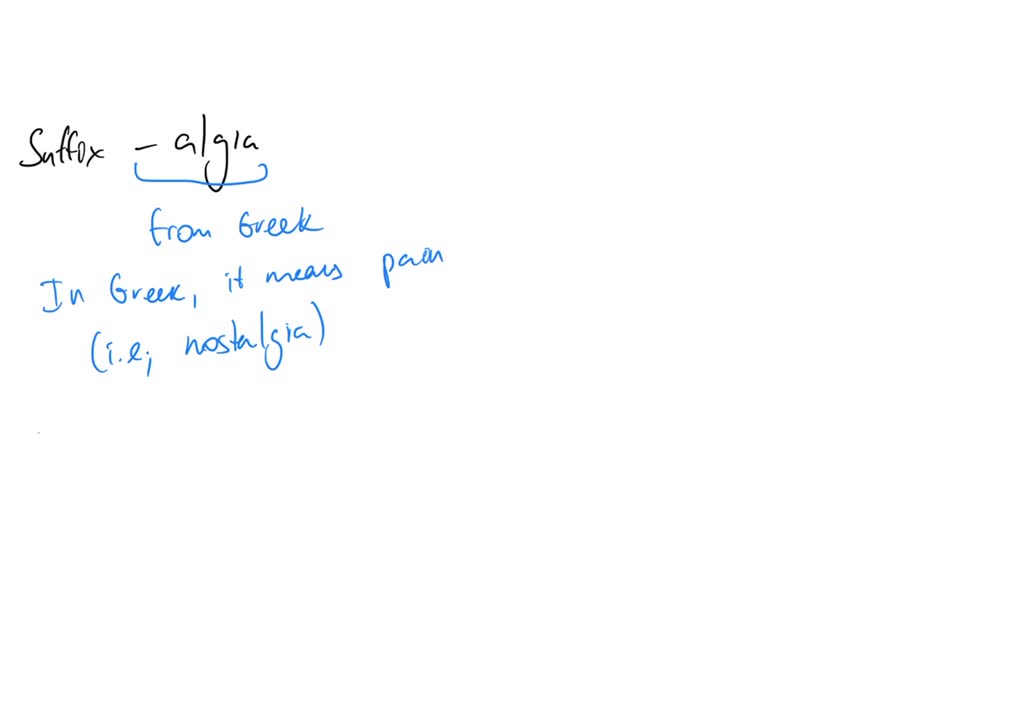 Suffix - algia
from Greek
In Greek, it means pain
(i.e; nostalgia)